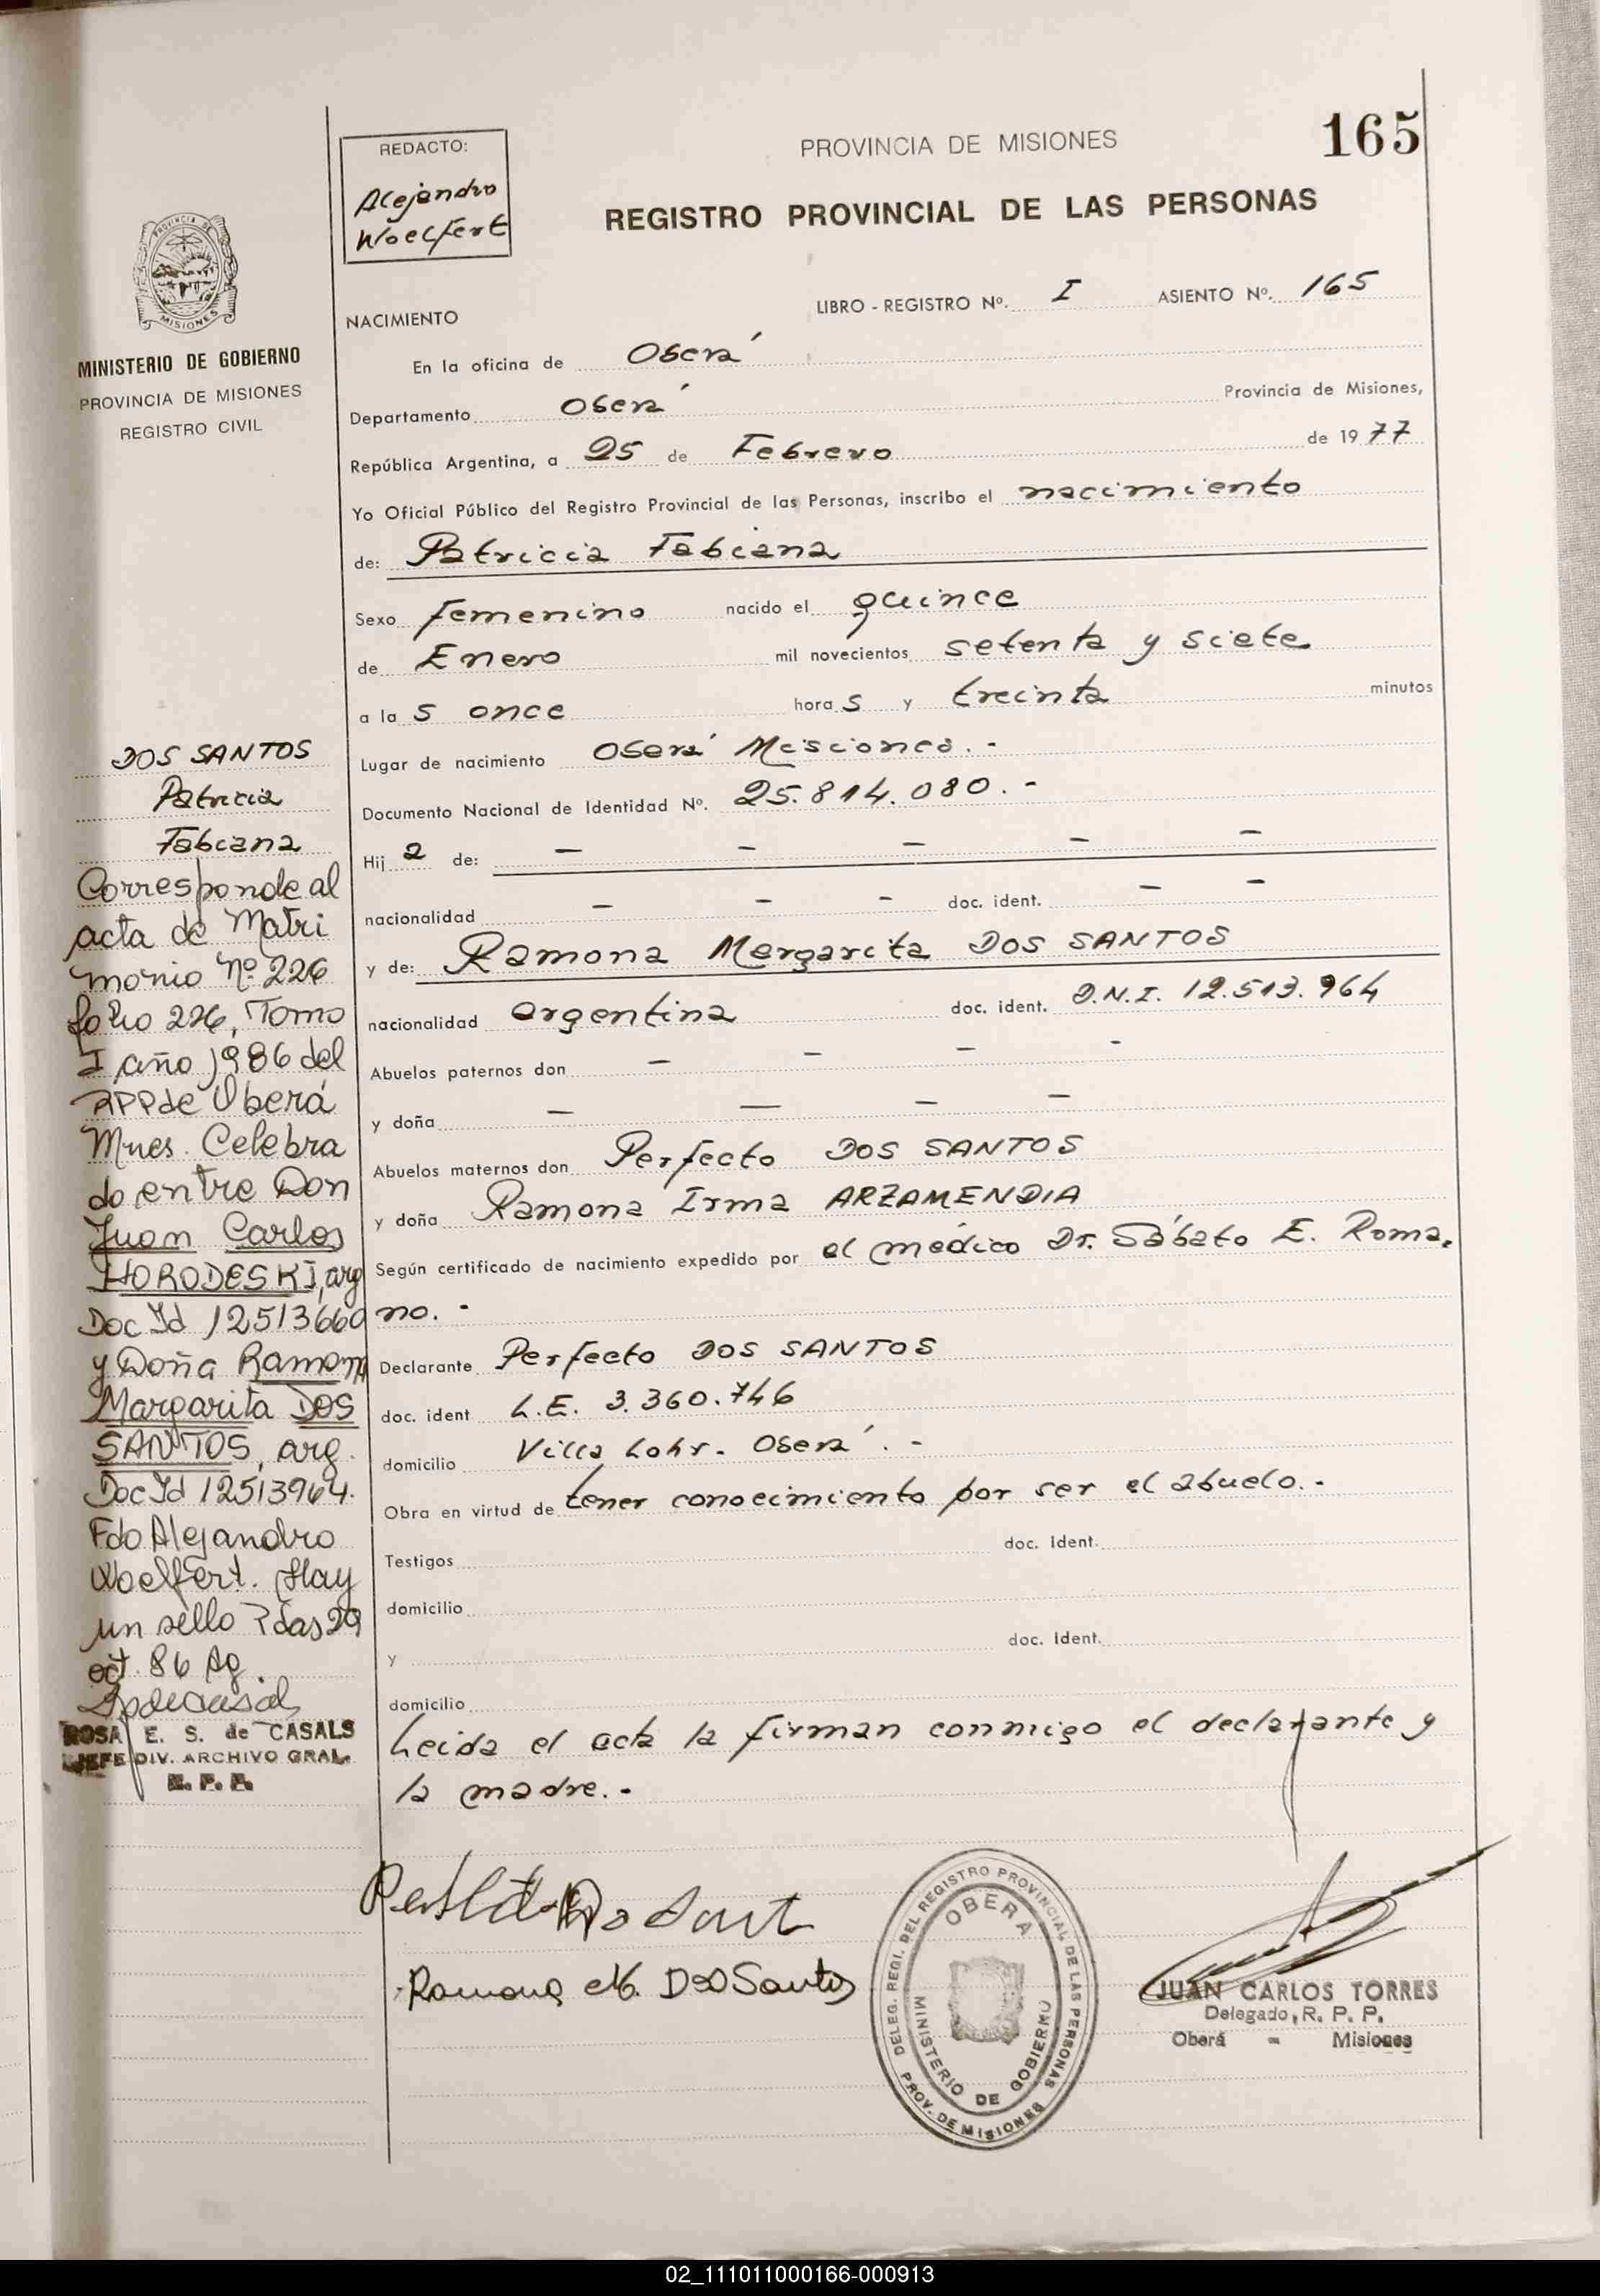 165
REDACTO:
Alejandro
Woelfert
PROVINCIA DE MISIONES
REGISTRO PROVINCIAL DE LAS PERSONAS
PROVINCIA DE
MISIONES
MINISTERIO DE GOBIERNO
PROVINCIA DE MISIONES
REGISTRO CIVIL
LIBRO - REGISTRO Nº. I ASIENTO Nº. 165
NACIMIENTO
En la oficina de Oberá
Departamento Oberá Provincia de Misiones,
República Argentina, a 25 de Febrero de 1977
Yo Oficial Público del Registro Provincial de las Personas, inscribo el nacimiento
de: Patricia Fabiana
Sexo femenino nacido el quince
de Enero mil novecientos setenta y siete
a la s once hora s y treinta minutos
Lugar de nacimiento Oberá Misiones. -
Documento Nacional de Identidad Nº. 25.814.080. -
Hij a de: — — — — —
nacionalidad — — — doc. ident. — —
y de: Ramona Margarita DOS SANTOS
nacionalidad argentina doc. ident. D.N.I. 12.513.964
Abuelos paternos don — — — -
y doña — — — —
Abuelos maternos don Perfecto DOS SANTOS
y doña Ramona Irma ARZAMENDIA
Según certificado de nacimiento expedido por el médico Dr. Sábato E. Roma-
no. -
Declarante Perfecto DOS SANTOS
doc. ident L.E. 3.360.746
domicilio Villa Lohr. Oberá. -
Obra en virtud de tener conocimiento por ser el abuelo. -
Testigos doc. Ident.
domicilio
y doc. Ident.
domicilio
Leida el acta la firman conmigo el declarante y
la madre. -
DOS SANTOS
Patricia
Fabiana
Corresponde al
acta de Matri
monio Nº 226
folio 226, Tomo
I año 1986 del
RPP de Oberá
Mnes. Celebra
do entre Don
Juan Carlos
HORODESKI, arg
Doc Id 12513660
y Doña Ramona
Margarita DOS
SANTOS, arg.
Doc Id 12513964.
Fdo Alejandro
Woelfert. Hay
un sello Pdas 29
oct. 86 Ag.
ROSA E. S. de CASALS
JEFE DIV. ARCHIVO GRAL.
R. P. P.
Ramona M. Dos Santos
DELEG. REGI. DEL REGISTRO PROVINCIAL DE LAS PERSONAS
OBERA
MINISTERIO DE GOBIERNO
PROV. DE MISIONES
JUAN CARLOS TORRES
Delegado, R. P. P.
Oberá - Misiones
02_111011000166-000913